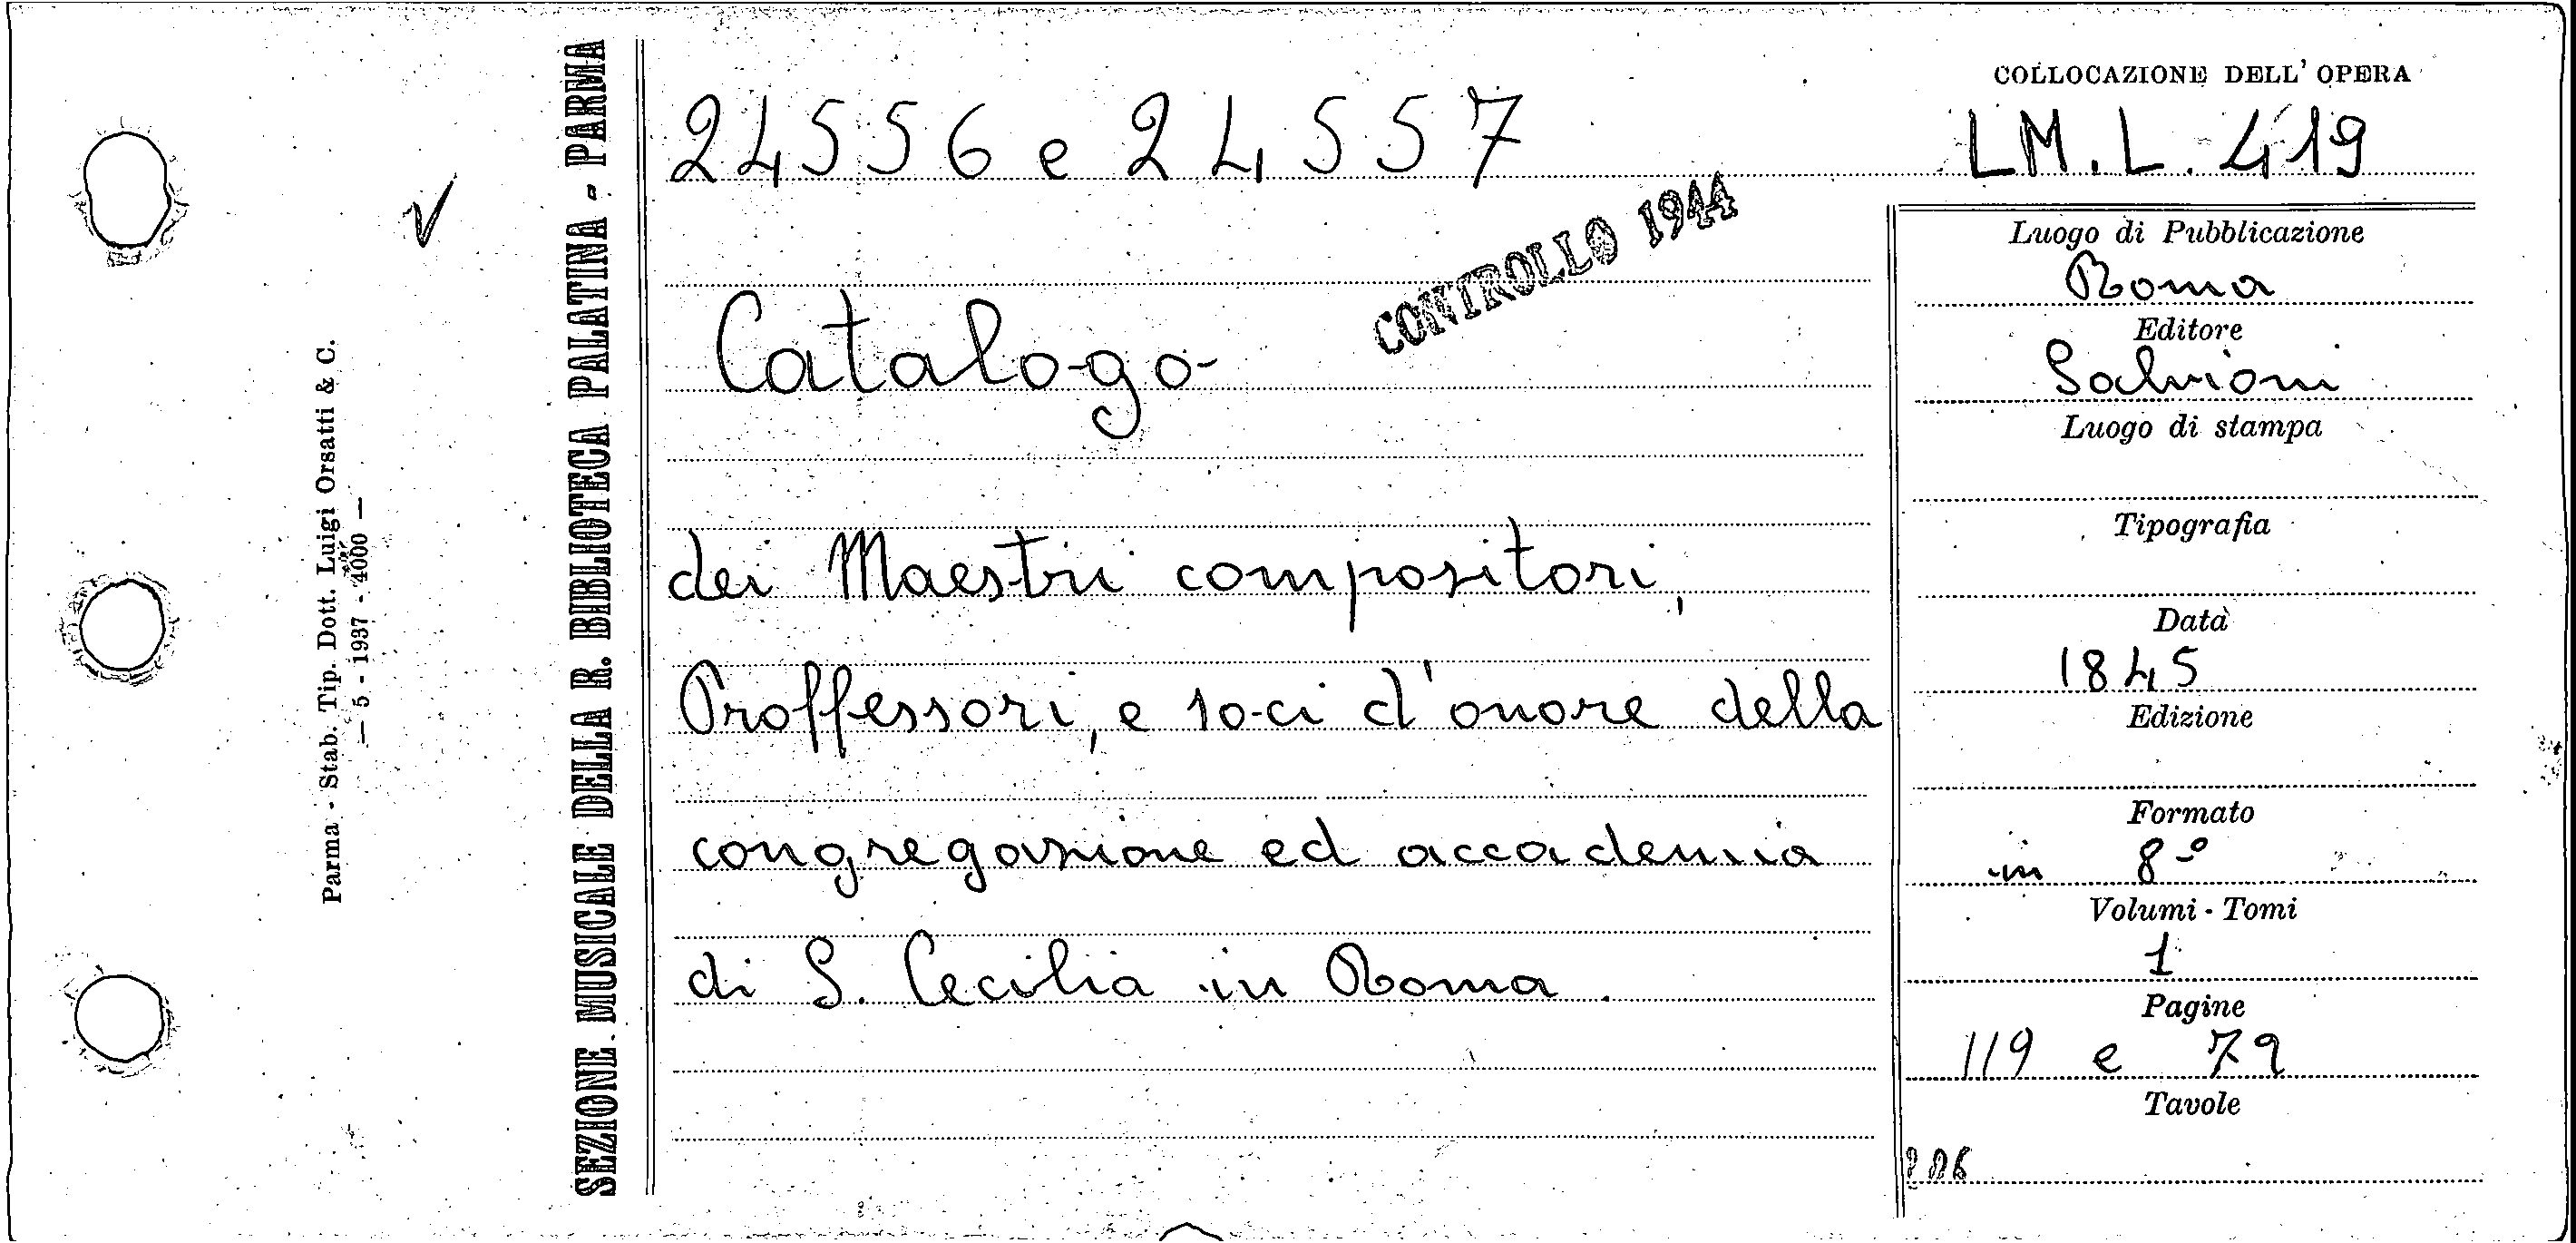 Parma - Stab. Tip. Dott. Luigi Orsatti & C.
— 5 - 1937 - 4000 —
SEZIONE MUSICALE DELLA R. BIBLIOTECA PALATINA - PARMA
24556 e 24557
CONTROLLO 1944
Catalogo
dei Maestri compositori,
Proffessori, e soci d'onore della
congregazione ed accademia
di S. Cecilia in Roma.
COLLOCAZIONE DELL' OPERA
LM. L. 419
Luogo di Pubblicazione
Roma
Editore
Salvioni
Luogo di stampa
Tipografia
Data
1845
Edizione
Formato
in 8º
Volumi - Tomi
1
Pagine
119 e 79
Tavole